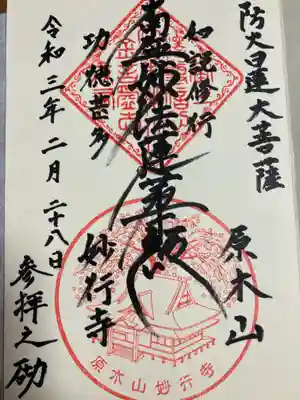 防火日蓮大菩薩
原木山
妙行寺
如説修行
南無妙法蓮華経
功徳甚多
令和三年二月二十八日
参拝之砌
原木山妙行寺